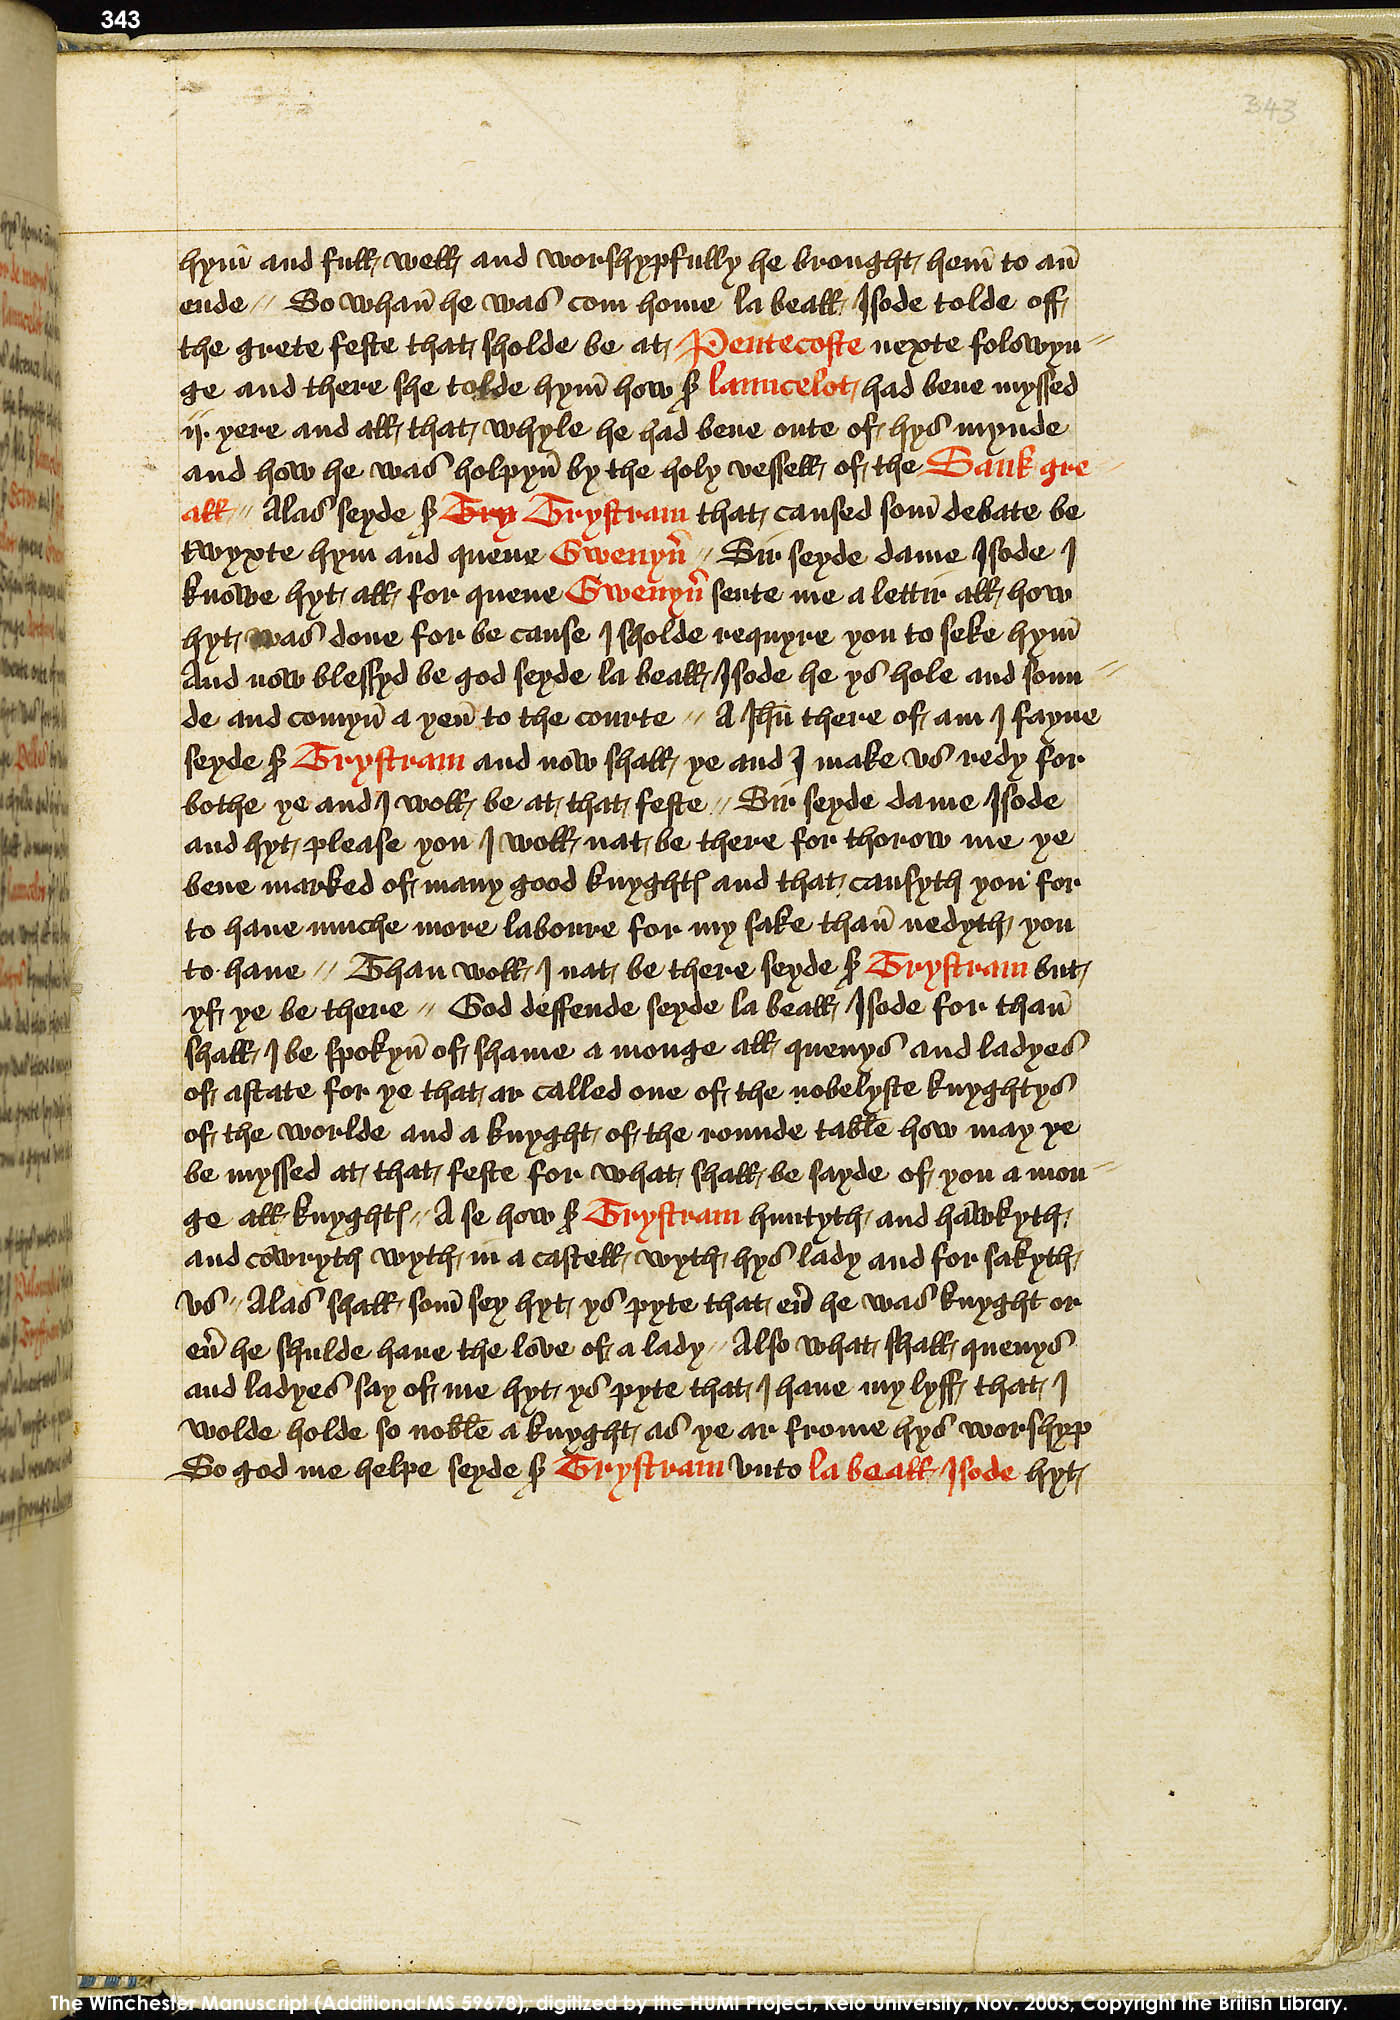 343
343
hym̄ and full well and worshypfully he brought hem̄ to an̄
ende // So whan̄ he was com home la beall Isode tolde off
the grete feste that sholde be at Pentecoste nexte folowyn//
ge and there she tolde hym̄ how sͬ launcelot had bene myssed
ij yere and all that whyle he had bene oute of hys mynde
and how he was holpyn̄ by the holy vessell of the Sank gre//
all // Alas seyde sͬ Try Trystram that caused som̄ debate be
twyxte hym and quene Gwenyn̄ // Sir seyde dame Isode I
knowe hyt all for quene Gwenyn̄ sente me a lettir all how
hyt was done for be cause I sholde requyre you to seke hym̄
And now blessyd be god seyde la beall Isode he ys hole and soun//
de and comyn̄ a yen̄ to the courte // A Ihū there of am I fayne
seyde sͬ Trystram and now shall ye and I make vs redy for
bothe ye and I woll be at that feste // Sir seyde dame Isode
and hyt please you I woll nat be there for thorow me ye
bene marked of many good knyghtꝭ and that causyth you for
to haue muche more laboure for my sake than̄ nedyth you
to haue // Than woll I nat be there seyde sͬ Trystram but
yf ye be there // God deffende seyde la beall Isode for than̄
shall I be spokyn̄ of shame a monge all quenys and ladyes
of astate for ye that ar called one of the nobelyste knyghtys
of the worlde and a knyght of the rounde table how may ye
be myssed at that feste for what shall be sayde of you a mon//
ge all knyghtꝭ // A se how sͬ Trystram huntyth and hawkyth
and cowryth wyth in a castell wyth hys lady and for sakyth
vs // Alas shall som̄ sey hyt ys pyte that eū he was knyght or
eū he shulde haue the love of a lady // Also what shall quenys
and ladyes say of me hyt ys pyte that I haue my lyff that I
wolde holde so noble a knyght as ye ar frome hys worshyp
So god me helpe seyde sͬ Trystram vnto la beall Isode hyt
The Winchester Manuscript (Additional MS 59678), digitized by the HUMI Project, Keio University, Nov. 2003, Copyright the British Library.